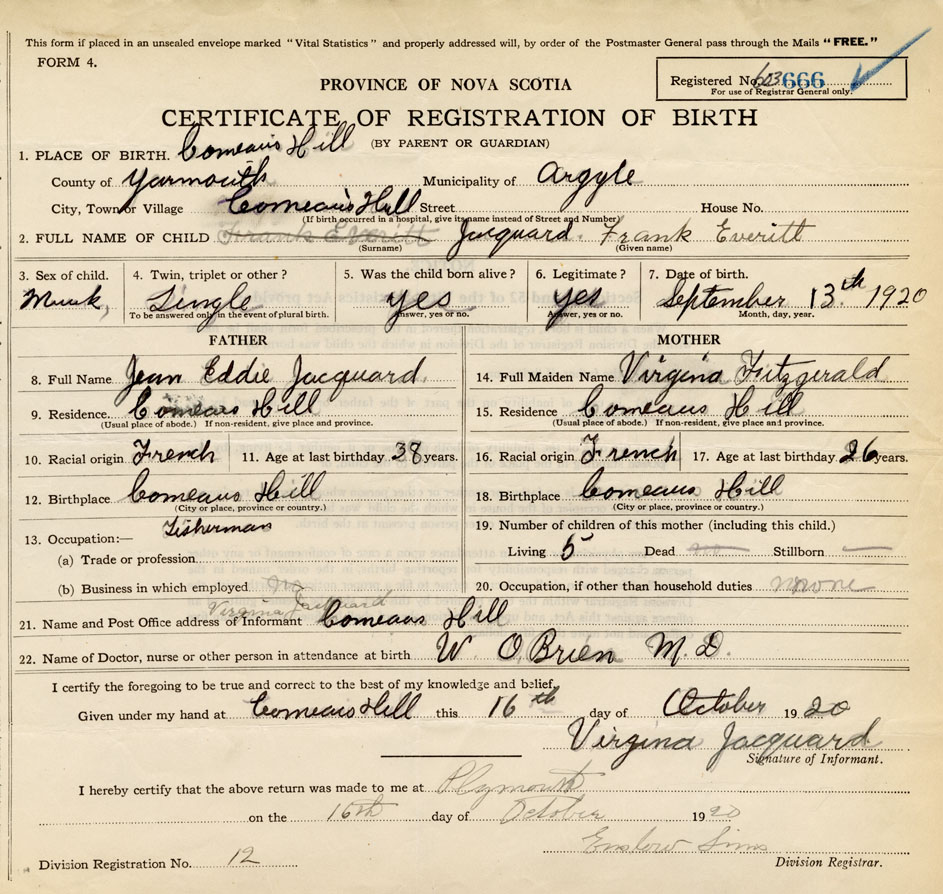 This form if placed in an unsealed envelope marked "Vital Statistics" and properly addressed will, by order of the Postmaster General pass through the Mails "FREE."
FORM 4.
PROVINCE OF NOVA SCOTIA
Registered No. 603 666
For use of Registrar General only.
CERTIFICATE OF REGISTRATION OF BIRTH
(BY PARENT OR GUARDIAN)
1. PLACE OF BIRTH. Comeaus Hill
County of Yarmouth Municipality of Argyle
City, Town or Village Comeaus Hill Street House No.
(If birth occurred in a hospital, give its name instead of Street and Number)
2. FULL NAME OF CHILD Frank Everitt Jacquard. Frank Everitt
(Surname) (Given name)
3. Sex of child. 4. Twin, triplet or other? 5. Was the child born alive? 6. Legitimate? 7. Date of birth.
Single yes yes September 13th 1920
To be answered only in the event of plural birth. Answer, yes or no. Answer, yes or no. Month, day, year.
FATHER MOTHER
8. Full Name Jean Eddie Jacquard. 14. Full Maiden Name Virgina Fitzgerald
9. Residence. Comeaus Hill 15. Residence Comeaus Hill
(Usual place of abode.) If non-resident, give place and province. (Usual place of abode.) If non-resident, give place and province.
10. Racial origin French 11. Age at last birthday 38 years. 16. Racial origin French 17. Age at last birthday 26 years.
12. Birthplace Comeaus Hill 18. Birthplace Comeaus Hill
(City or place, province or country.) (City or place, province or country.)
13. Occupation:— Fisherman 19. Number of children of this mother (including this child.)
(a) Trade or profession Living 5 Dead no Stillborn —
(b) Business in which employed no 20. Occupation, if other than household duties none
Virgina Jacquard
21. Name and Post Office address of Informant Comeaus Hill
22. Name of Doctor, nurse or other person in attendance at birth W O'Brien M.D.
I certify the foregoing to be true and correct to the best of my knowledge and belief.
Given under my hand at Comeaus Hill this 16th day of October 1920
Virgina Jacquard
Signature of Informant.
I hereby certify that the above return was made to me at Plymouth
on the 16th day of October 1920
Enslow Sims
Division Registrar.
Division Registration No. 12